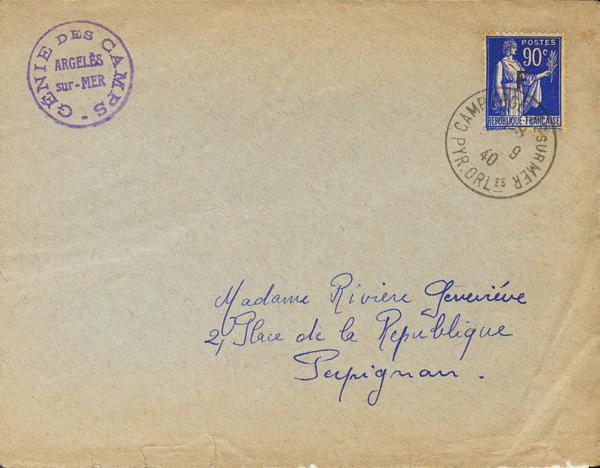 GÉNIE DES CAMPS -
ARGELÈS
sur-MER
POSTES
90c
REPUBLIQUE-FRANÇAISE
CAMP SUR MER
PYR. ORLES
9
40
Madame Rivière Geneviéve
2, Place de la Republique
Perpignan.